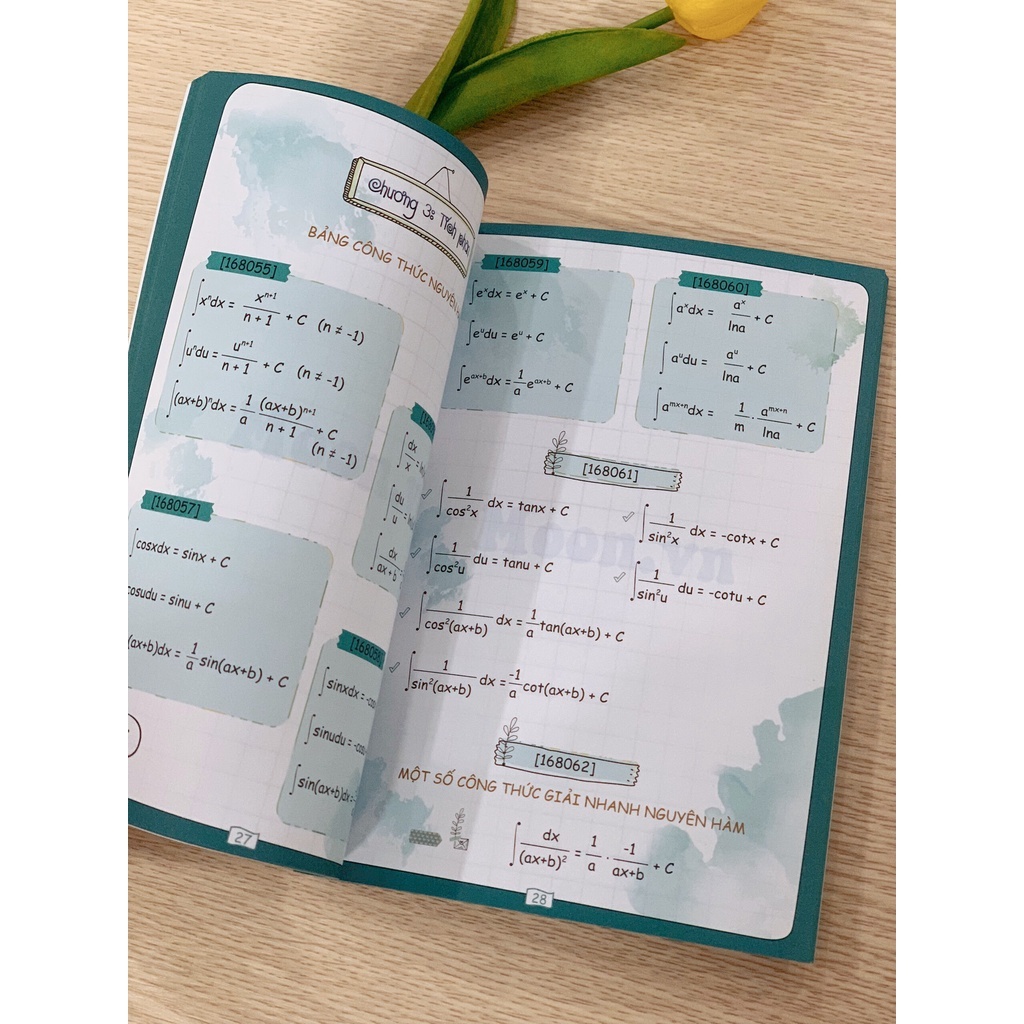 Chương 3: Tích phân
BẢNG CÔNG THỨC NGUYÊN
[168055]
∫xⁿdx = xⁿ⁺¹/(n + 1) + C (n ≠ -1)
∫uⁿdu = uⁿ⁺¹/(n + 1) + C (n ≠ -1)
∫(ax+b)ⁿdx = 1/a (ax+b)ⁿ⁺¹/(n + 1) + C
(n ≠ -1)
∫dx/x =
∫du/u =
∫dx/(ax+b) =
[168057]
∫cosxdx = sinx + C
cosudu = sinu + C
(ax+b)dx = 1/a sin(ax+b) + C
∫sinxdx = -cos
∫sinudu = -cos
∫sin(ax+b)dx = -
27
[168059]
∫eˣdx = eˣ + C
∫eᵘdu = eᵘ + C
∫eᵃˣ⁺ᵇdx = 1/a eᵃˣ⁺ᵇ + C
[168060]
∫aˣdx = aˣ/lna + C
∫aᵘdu = aᵘ/lna + C
∫aᵐˣ⁺ⁿdx = 1/m · aᵐˣ⁺ⁿ/lna + C
[168061]
∫1/cos²x dx = tanx + C
∫1/sin²x dx = -cotx + C
∫1/cos²u du = tanu + C
∫1/sin²u du = -cotu + C
∫1/cos²(ax+b) dx = 1/a tan(ax+b) + C
∫1/sin²(ax+b) dx = -1/a cot(ax+b) + C
[168062]
MỘT SỐ CÔNG THỨC GIẢI NHANH NGUYÊN HÀM
∫dx/(ax+b)² = 1/a · -1/(ax+b) + C
28